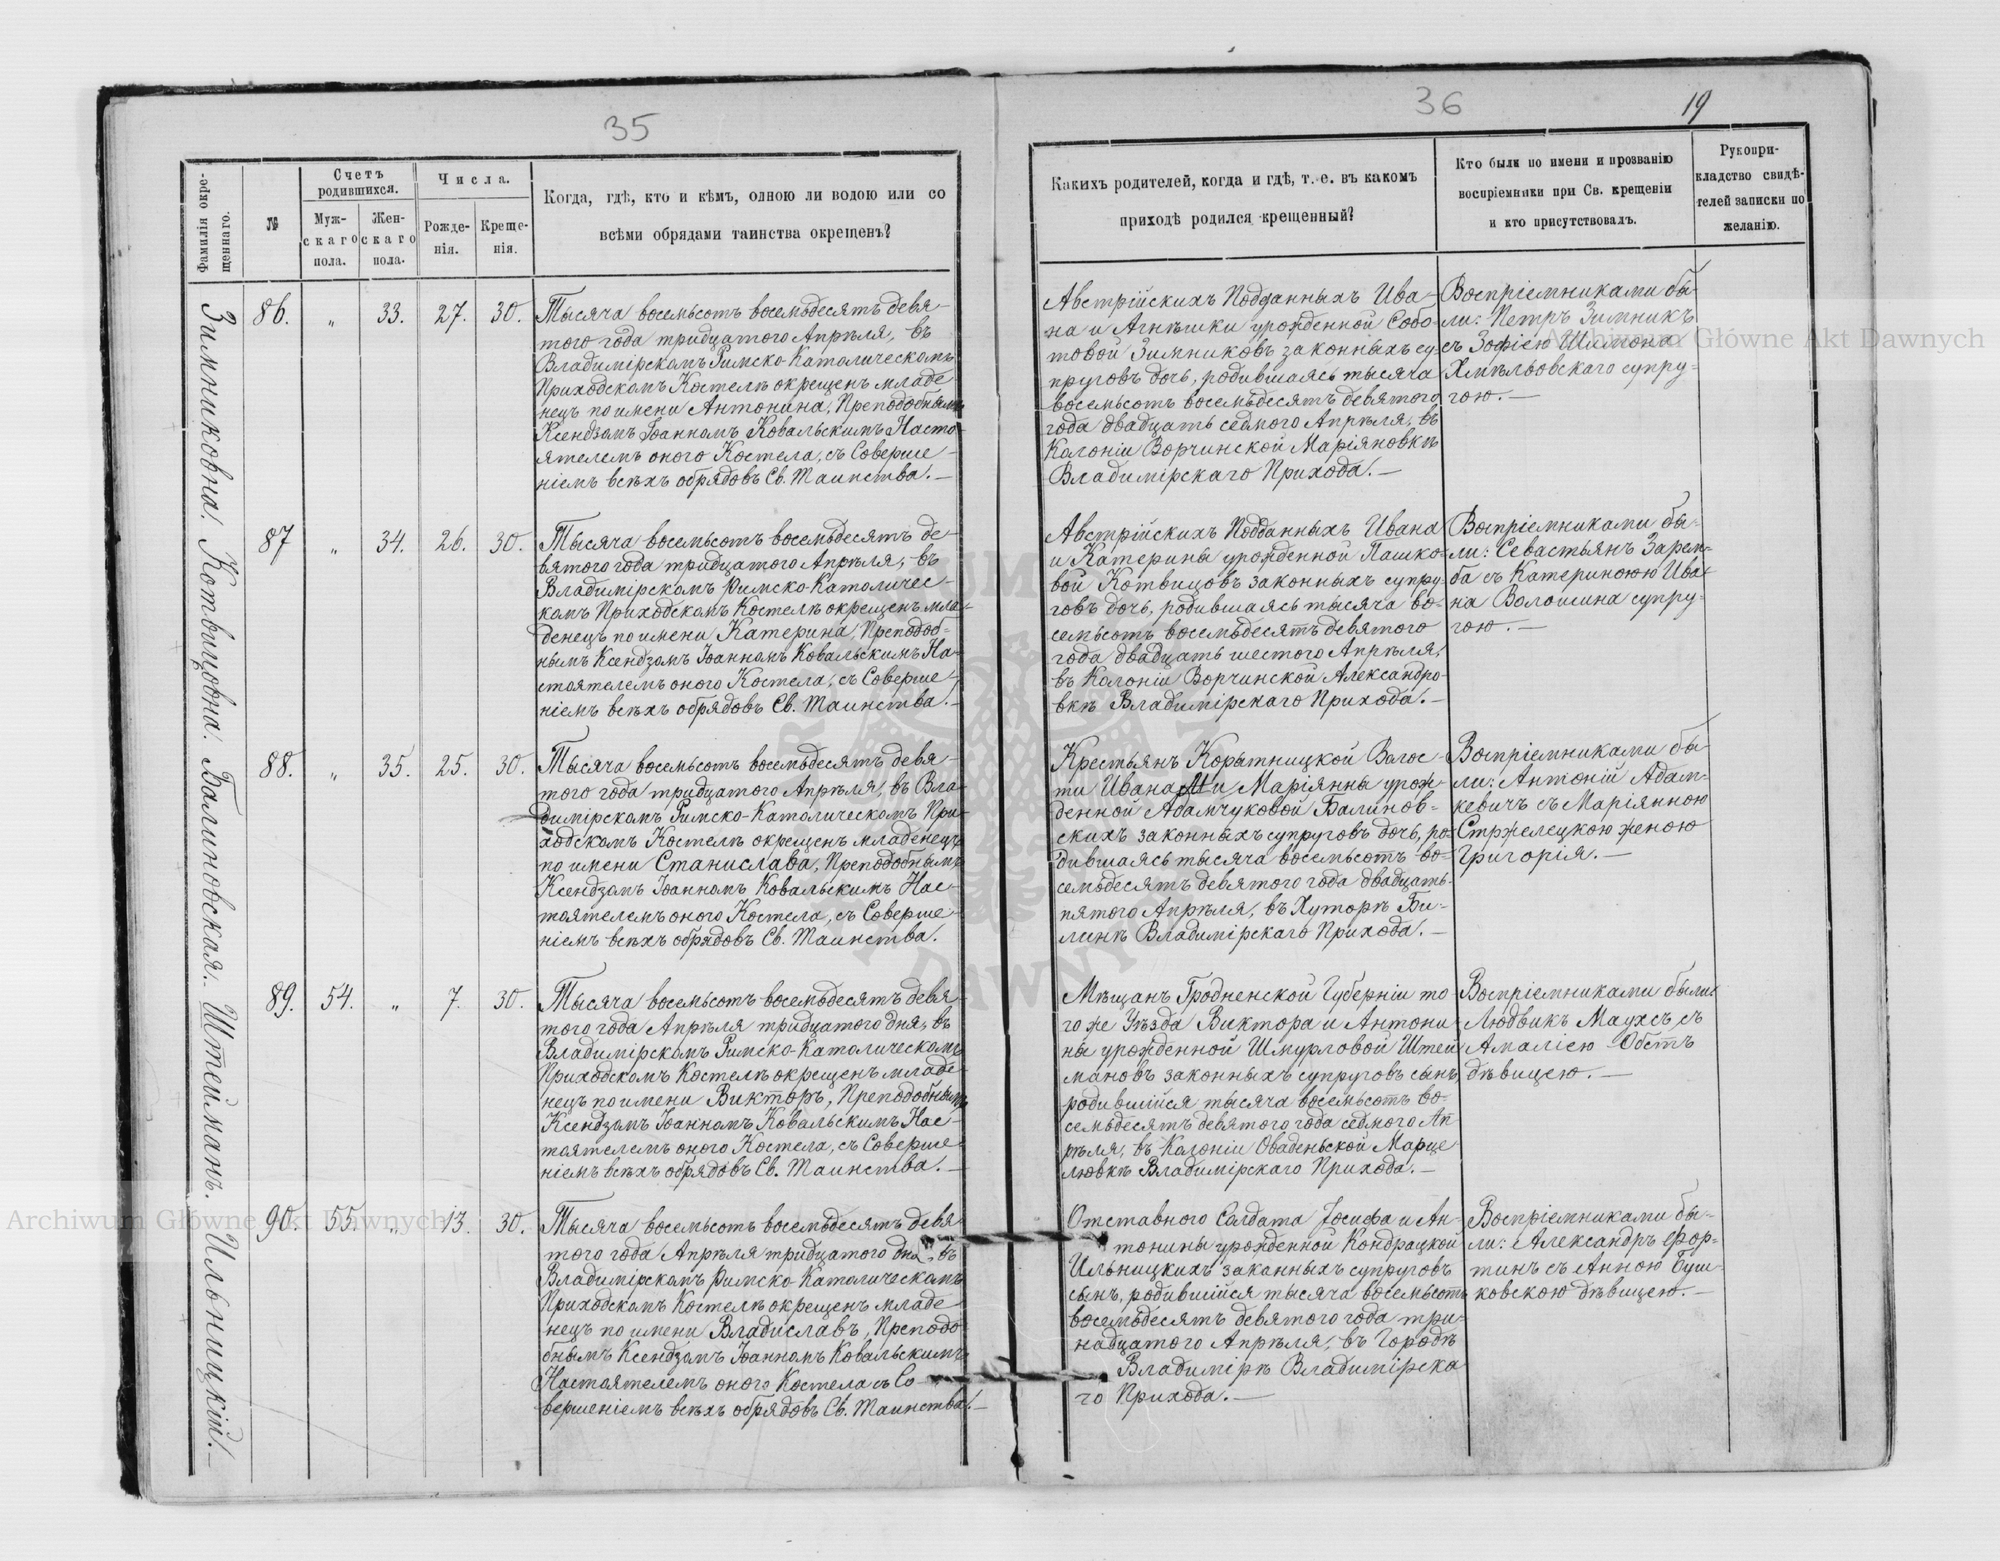 35
Фамилія окре-
щеннаго.
№
Счетъ
родившихся.
Муж-
скаго
пола.
Жен-
скаго
пола.
Числа.
Рожде-
нія.
Креще-
нія.
Когда, гдѣ, кто и кѣмъ, одною ли водою или со
всѣми обрядами таинства окрещенъ?
Зимниковна. Котвицовна. Балиновская. Штейманъ. Ильницкій.—
86. „ 33. 27. 30.
Тысяча восемьсотъ восемьдесятъ девя-
того года тридцатого Апрѣля, въ
Владимірскомъ Римско-Католическомъ
Приходскомъ Костелѣ окрещенъ младе
нецъ по имени Антонина, Преподобнымъ
Ксендзомъ Іоанномъ Ковальскимъ Насто-
ятелемъ оного Костела, съ Соверше-
ніемъ всѣхъ обрядовъ Св. Таинства.—
87 „ 34. 26. 30.
Тысяча восемьсотъ восемьдесятъ де-
вятого года тридцатого Апрѣля, въ
Владимірскомъ Римско-Католичес-
комъ Приходскомъ Костелѣ окрещенъ мла-
денецъ по имени Катерина, Преподоб-
нымъ Ксендзомъ Іоанномъ Ковальскимъ На-
стоятелемъ оного Костела, съ Соверше-
ніемъ всѣхъ обрядовъ Св. Таинства.—
88. „ 35. 25. 30.
Тысяча восемьсотъ восемьдесятъ девя-
того года тридцатого Апрѣля, въ Вла-
димірскомъ Римско-Католическомъ При-
ходскомъ Костелѣ окрещенъ младенецъ
по имени Станислава, Преподобнымъ
Ксендзомъ Іоанномъ Ковальскимъ Нас-
тоятелемъ оного Костела, съ Соверше-
ніемъ всѣхъ обрядовъ Св. Таинства.
89. 54. „ 7. 30.
Тысяча восемьсотъ восемьдесятъ девя-
того года Апрѣля тридцатого дня, въ
Владимірскомъ Римско-Католическомъ
Приходскомъ Костелѣ окрещенъ младе-
нецъ по имени Викторъ, Преподобнымъ
Ксендзомъ Іоанномъ Ковальскимъ Нас-
тоятелемъ оного Костела, съ Соверше-
ніемъ всѣхъ обрядовъ Св. Таинства.—
90. 55. „ 13. 30.
Тысяча восемьсотъ восемьдесятъ девя-
того года Апрѣля тридцатого дня, въ
Владимірскомъ Римско-Католическомъ
Приходскомъ Костелѣ окрещенъ младе
нецъ по имени Владиславъ, Преподо
бнымъ Ксендзомъ Іоанномъ Ковальскимъ
Настоятелемъ оного Костела съ Со-
вершеніемъ всѣхъ обрядовъ Св. Таинства.—
36
19
Какихъ родителей, когда и гдѣ, т. е. въ какомъ
приходѣ родился крещенный?
Кто были по имени и прозванію
воспріемники при Св. крещеніи
и кто присутствовалъ.
Рукопри-
кладство свидѣ-
телей записки по
желанію.
Австрійскихъ Подданныхъ Ива-
на и Агнѣшки урожденной Собо-
товой Зимниковъ законныхъ су-
пруговъ дочь, родившаясь тысяча
восемьсотъ восемьдесятъ девятого
года двадцать седмого Апрѣля, въ
Колоніи Ворчинской Маріяновкѣ
Владимірскаго Прихода.—
Воспріемниками бы-
ли: Петръ Зимникъ
съ Зофіею Шимона
Хмѣлѣовскаго супру-
гою.—
Австрійскихъ Подданныхъ Ивана
и Катерины урожденной Пашко-
вой Котвицовъ законныхъ супру-
говъ дочь, родившаясь тысяча во-
семьсотъ восемьдесятъ девятого
года двадцать шестого Апрѣля,
въ Колоніи Ворчинской Александро-
вкѣ Владимірскаго Прихода.—
Воспріемниками бы-
ли: Севастьянъ Зарем-
ба съ Катериною Ива-
на Волошина супру-
гою.—
Крестьянъ Корытницкой Волос-
ти Ивана и Маріянны урож-
денной Адамчуковой Балинов-
скихъ законныхъ супруговъ дочь, ро-
дившаясь тысяча восемьсотъ во-
семьдесятъ девятого года двадцать
пятого Апрѣля, въ Хуторѣ Би-
линѣ Владимірскаго Прихода.—
Воспріемниками бы-
ли: Антоній Адам-
кевичъ съ Маріянною
Стржелецкою женою
Григорія.—
Мѣщанъ Гродненской Губерніи то-
го же Уѣзда Виктора и Антони-
ны урожденной Шмурловой Штей
мановъ законныхъ супруговъ сынъ,
родившійся тысяча восемьсотъ во-
семьдесятъ девятого года седмого Ап
рѣля, въ Колоніи Оваденьской Марце
левкѣ Владимірскаго Прихода.—
Воспріемниками были:
Людвикъ Маухсъ съ
Амаліею Обстъ
дѣвицею.—
Отставного Солдата Іосифа и Ан-
тонины урожденной Кондрацкой
Ильницкихъ законныхъ супруговъ
сынъ, родившійся тысяча восемьсотъ
восемьдесятъ девятого года три-
надцатого Апрѣля, въ Городѣ
Владимірѣ Владимірска
го Прихода.—
Воспріемниками бы-
ли: Александръ Фор-
тинъ съ Анною Буш-
ковскою дѣвицею.—
Archiwum Główne Akt Dawnych
Archiwum Główne Akt Dawnych